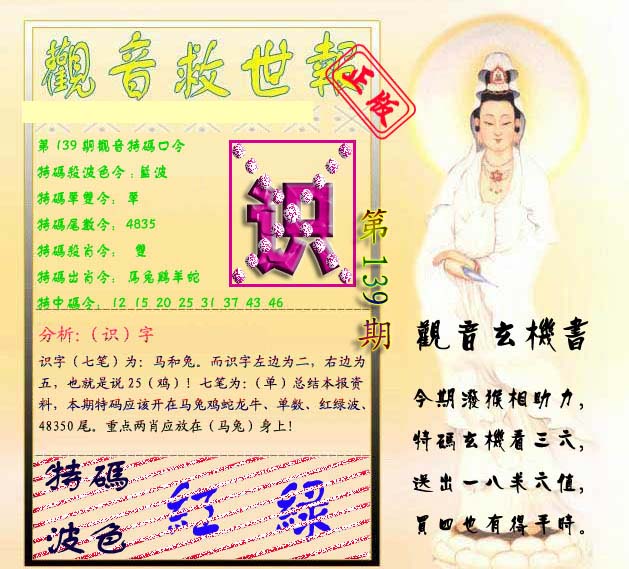 觀音救世報
正版
第139期觀音特碼口令
特碼殺波色令:藍波
特碼單雙令: 單
特碼尾數令: 4835
特碼殺肖令: 雙
特碼出肖令: 馬兔鷄羊蛇
特中碼令: 12 15 20 25 31 37 43 46
识
第139期
分析:（识）字
识字（七笔）为: 马和兔。而识字左边为二, 右边为
五, 也就是说25（鸡）! 七笔为:（单）总结本报资
料, 本期特码应该开在马兔鸡蛇龙牛、单数、红绿波、
48350尾。重点两肖应放在（马兔）身上!
特碼
波色
紅 綠
觀音玄機書
今期潑猴相助力,
特碼玄機看三六,
送出一八求六值,
買四也有得平時。